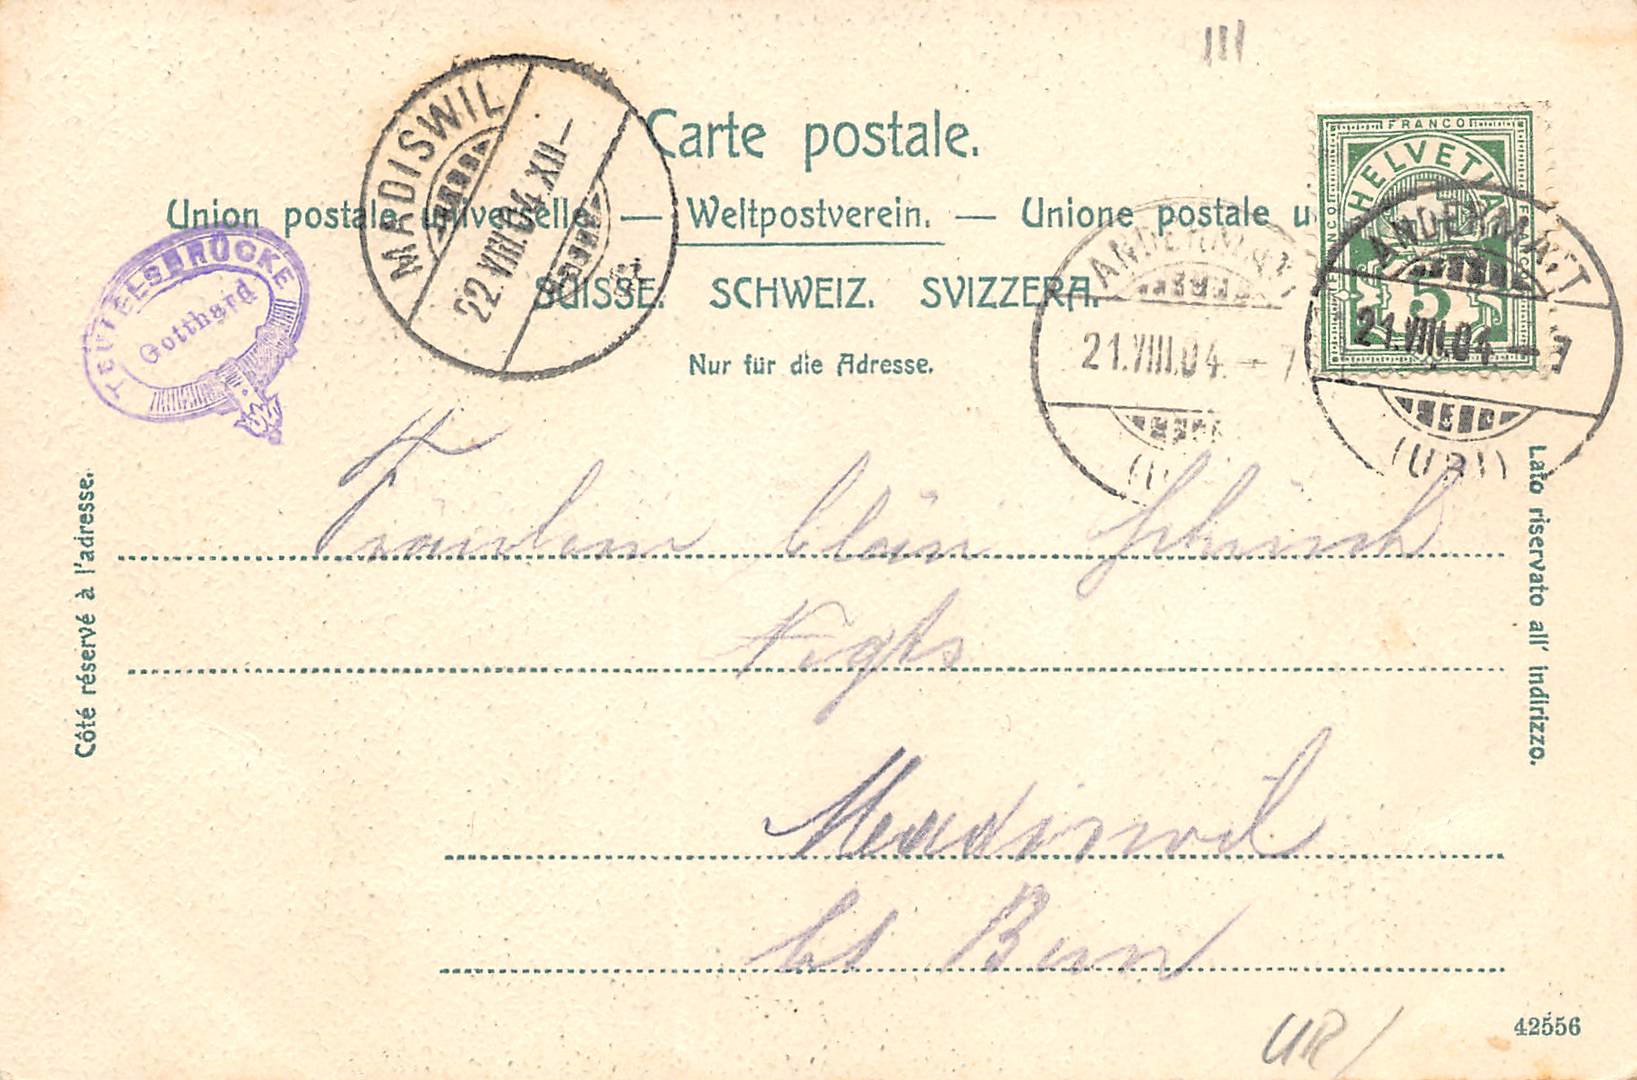 III
Carte postale.
Union postale universelle. — Weltpostverein. — Unione postale u
SUISSE. SCHWEIZ. SVIZZERA.
Nur für die Adresse.
MADISWIL
22.VIII.04.XII–
TEUFELSBRÜCKE
Gotthard
ANDERMATT
21.VIII.04.–7
FRANCO
HELVETIA
FRANCO
FRANCO
5
ANDERMATT
21.VIII.04.–7
(URI)
Côté réservé à l'adresse.
Lato riservato all' indirizzo.
Fräulein
Madiswil
Ct Bern
42556
UR/